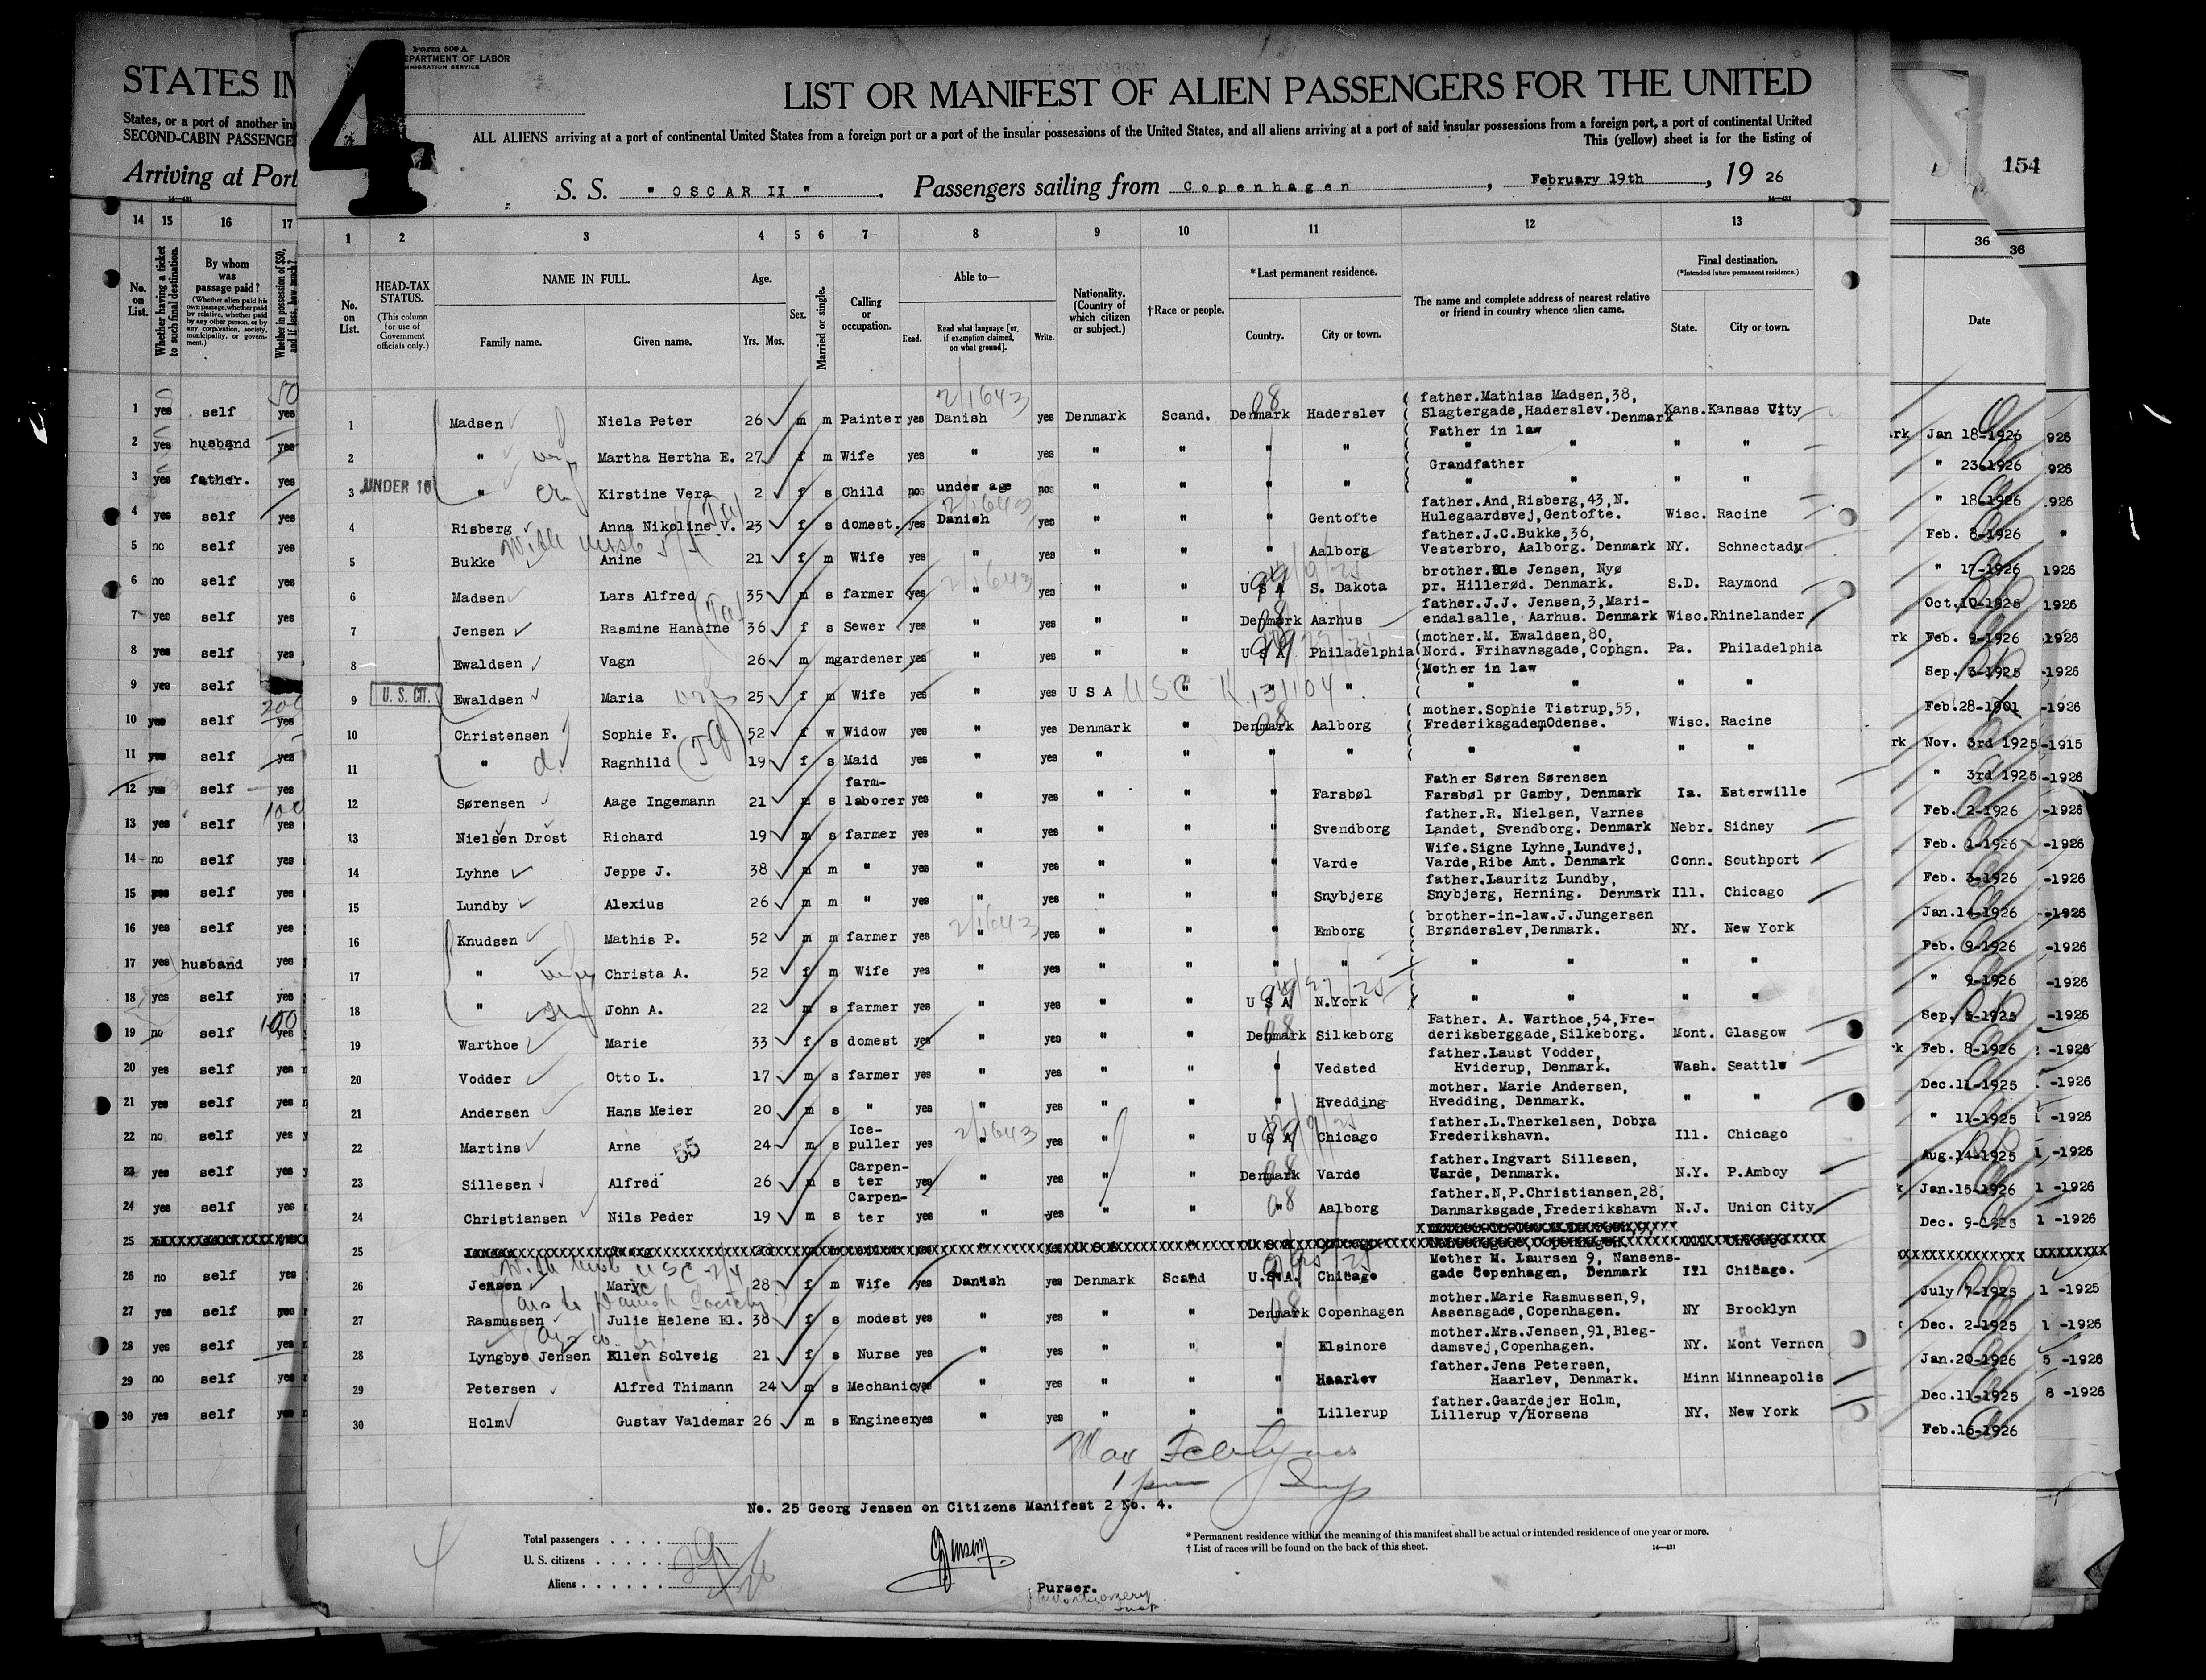 4
Form 500 A
DEPARTMENT OF LABOR
IMMIGRATION SERVICE
STATES IN
States, or a port of another in
SECOND-CABIN PASSENGE
Arriving at Port
LIST OR MANIFEST OF ALIEN PASSENGERS FOR THE UNITED
ALL ALIENS arriving at a port of continental United States from a foreign port or a port of the insular possessions of the United States, and all aliens arriving at a port of said insular possessions from a foreign port, a port of continental United
This (yellow) sheet is for the listing of
S. S. " OSCAR II " . Passengers sailing from Copenhagen , February 19th , 19 26
154
14 15 16 17
No. on List.
Whether having a ticket to such final destination.
By whom was passage paid?
(Whether alien paid his own passage, whether paid by relative, whether paid by any other person, or by any corporation, society, municipality, or government.)
Whether in possession of $50, and if less, how much?
1 2 3 4 5 6 7 8 9 10 11 12 13
No. on List.
HEAD-TAX STATUS.
(This column for use of Government officials only.)
NAME IN FULL.
Family name. Given name.
Age.
Yrs. Mos.
Sex.
Married or single.
Calling or occupation.
Able to—
Read. Read what language [or, if exemption claimed, on what ground]. Write.
Nationality. (Country of which citizen or subject.)
†Race or people.
*Last permanent residence.
Country. City or town.
The name and complete address of nearest relative or friend in country whence alien came.
Final destination.
(*Intended future permanent residence.)
State. City or town.
36 36
Date
1 yes self yes
2 yes husband yes
3 yes father. yes
4 yes self yes
5 no self yes
6 no self yes
7 yes self yes
8 yes self yes
9 yes self
10 yes self yes
11 yes self yes
12 yes self yes
13 yes self yes
14 no self yes
15 yes self yes
16 yes self yes
17 yes husband yes
18 yes self yes
19 no self yes
20 yes self yes
21 yes self yes
22 no self yes
23 yes self yes
24 yes self yes
25
26 no self yes
27 yes self yes
28 yes self yes
29 no self yes
30 yes self yes
1 Madsen Niels Peter 26 m m Painter yes Danish yes Denmark Scand. Denmark Haderslev father.Mathias Madsen,38, Slagtergade,Haderslev. Denmark Kans. Kansas City
2 " Martha Hertha E. 27 f m Wife yes " yes " " " " Father in law " " " "
3 UNDER 16 " Kirstine Vera 2 f s Child no under age no " " " " Grandfather " " " "
4 Risberg Anna Nikoline V. 23 f s domest. yes Danish yes " " " Gentofte father.And,Risberg,43,N. Hulegaardsvej,Gentofte. Wisc. Racine
5 Bukke Anine 21 f m Wife yes " yes " " " Aalborg father.J.C.Bukke,36, Vesterbro, Aalborg. Denmark NY. Schnectady
6 Madsen Lars Alfred 35 m s farmer yes " yes " " U S A S. Dakota brother. Ole Jensen, Nyø pr. Hillerød. Denmark. S.D. Raymond
7 Jensen Rasmine Hansine 36 f s Sewer yes " yes " " Denmark Aarhus father.J.J. Jensen,3,Mari- endalsalle, Aarhus. Denmark Wisc. Rhinelander
8 Ewaldsen Vagn 26 m m gardener yes " yes " " U S A Philadelphia mother.M. Ewaldsen,80, Nord. Frihavnsgade,Cophgn. Pa. Philadelphia
9 U. S. CIT. Ewaldsen Maria 25 f m Wife yes " yes U S A " " " Mother in law " " " "
10 Christensen Sophie F. 52 f w Widow yes " yes Denmark " Denmark Aalborg mother.Sophie Tistrup,55, Frederiksgade,Odense. Wisc. Racine
11 " Ragnhild 19 f s Maid yes " yes " " " " " " " "
12 Sørensen Aage Ingemann 21 m s farm- laborer yes " yes " " " Farsbøl Father Søren Sørensen Farsbøl pr Gamby, Denmark Ia. Esterwille
13 Nielsen Drost Richard 19 m s farmer yes " yes " " " Svendborg father.R. Nielsen, Varnes Landet, Svendborg. Denmark Nebr. Sidney
14 Lyhne Jeppe J. 38 m m " yes " yes " " " Varde Wife.Signe Lyhne,Lundvej, Varde,Ribe Amt. Denmark Conn. Southport
15 Lundby Alexius 26 m m " yes " yes " " " Snybjerg father.Lauritz Lundby, Snybjerg, Herning. Denmark Ill. Chicago
16 Knudsen Mathis P. 52 m m farmer yes " yes " " " Emborg brother-in-law.J.Jungersen Brønderslev,Denmark. NY. New York
17 " Christa A. 52 f m Wife yes " yes " " " " " " " "
18 " John A. 22 m s farmer yes " yes " " U S A N.York " " " "
19 Warthoe Marie 33 f s domest yes " yes " " Denmark Silkeborg Father. A. Warthoe,54,Fre- deriksberggade,Silkeborg. Mont. Glasgow
20 Vodder Otto L. 17 m s farmer yes " yes " " " Vedsted father.Laust Vodder, Hviderup, Denmark. Wash. Seattle
21 Andersen Hans Meier 20 m s " yes " yes " " " Hvedding mother. Marie Andersen, Hvedding, Denmark. " "
22 Martins Arne 55 24 m s Ice- puller yes " yes " " U S A Chicago father.L.Therkelsen, Dobra Frederikshavn. Ill. Chicago
23 Sillesen Alfred 26 m s Carpen- ter yes " yes " " Denmark Varde father.Ingvart Sillesen, Varde, Denmark. N.Y. P.Amboy
24 Christiansen Nils Peder 19 m s Carpen- ter yes " yes " " " Aalborg father.N.P.Christiansen,28, Danmarksgade,Frederikshavn N.J. Union City
25
26 Jensen Mary 28 f m Wife yes Danish yes Denmark Scand U.S.A. Chicago Mother M. Laursen 9, Nansens- gade Copenhagen, Denmark Ill Chicago.
27 Rasmussen Julie Helene El. 38 f s modest yes " yes " " Denmark Copenhagen mother.Marie Rasmussen,9, Assensgade,Copenhagen. NY Brooklyn
28 Lyngbye Jensen Ellen Solveig 21 f s Nurse yes " yes " " " Elsinore mother.Mrs.Jensen,91,Bleg- damsvej,Copenhagen. NY. Mont Vernon
29 Petersen Alfred Thimann 24 m s Mechanic yes " yes " " " Haarlev father.Jens Petersen, Haarlev, Denmark. Minn Minneapolis
30 Holm Gustav Valdemar 26 m s Engineer yes " yes " " " Lillerup father.Gaardejer Holm, Lillerup v/Horsens NY. New York
Jan 18-1926
" 23-1926
" 18-1926
Feb. 8-1926
" 17-1926
Oct.10-1925
Feb. 9-1926
Sep. 3-1925
Feb.28-1901
Nov. 3rd 1925
" 3rd 1925
Feb. 2-1926
Feb. 1-1926
Feb. 3-1926
Jan.14-1926
Feb. 9-1926
" 9-1926
Sep. 5-1925
Feb. 8-1926
Dec.11-1925
" 11-1925
Aug.14-1925
Jan.15-1926
Dec. 9-1925
July 7-1925
Dec. 2-1925
Jan.20-1926
Dec.11-1925
Feb.16-1926
No. 25 Georg Jensen on Citizens Manifest 2 No. 4.
Total passengers
U. S. citizens
Aliens
Purser.
* Permanent residence within the meaning of this manifest shall be actual or intended residence of one year or more.
† List of races will be found on the back of this sheet.